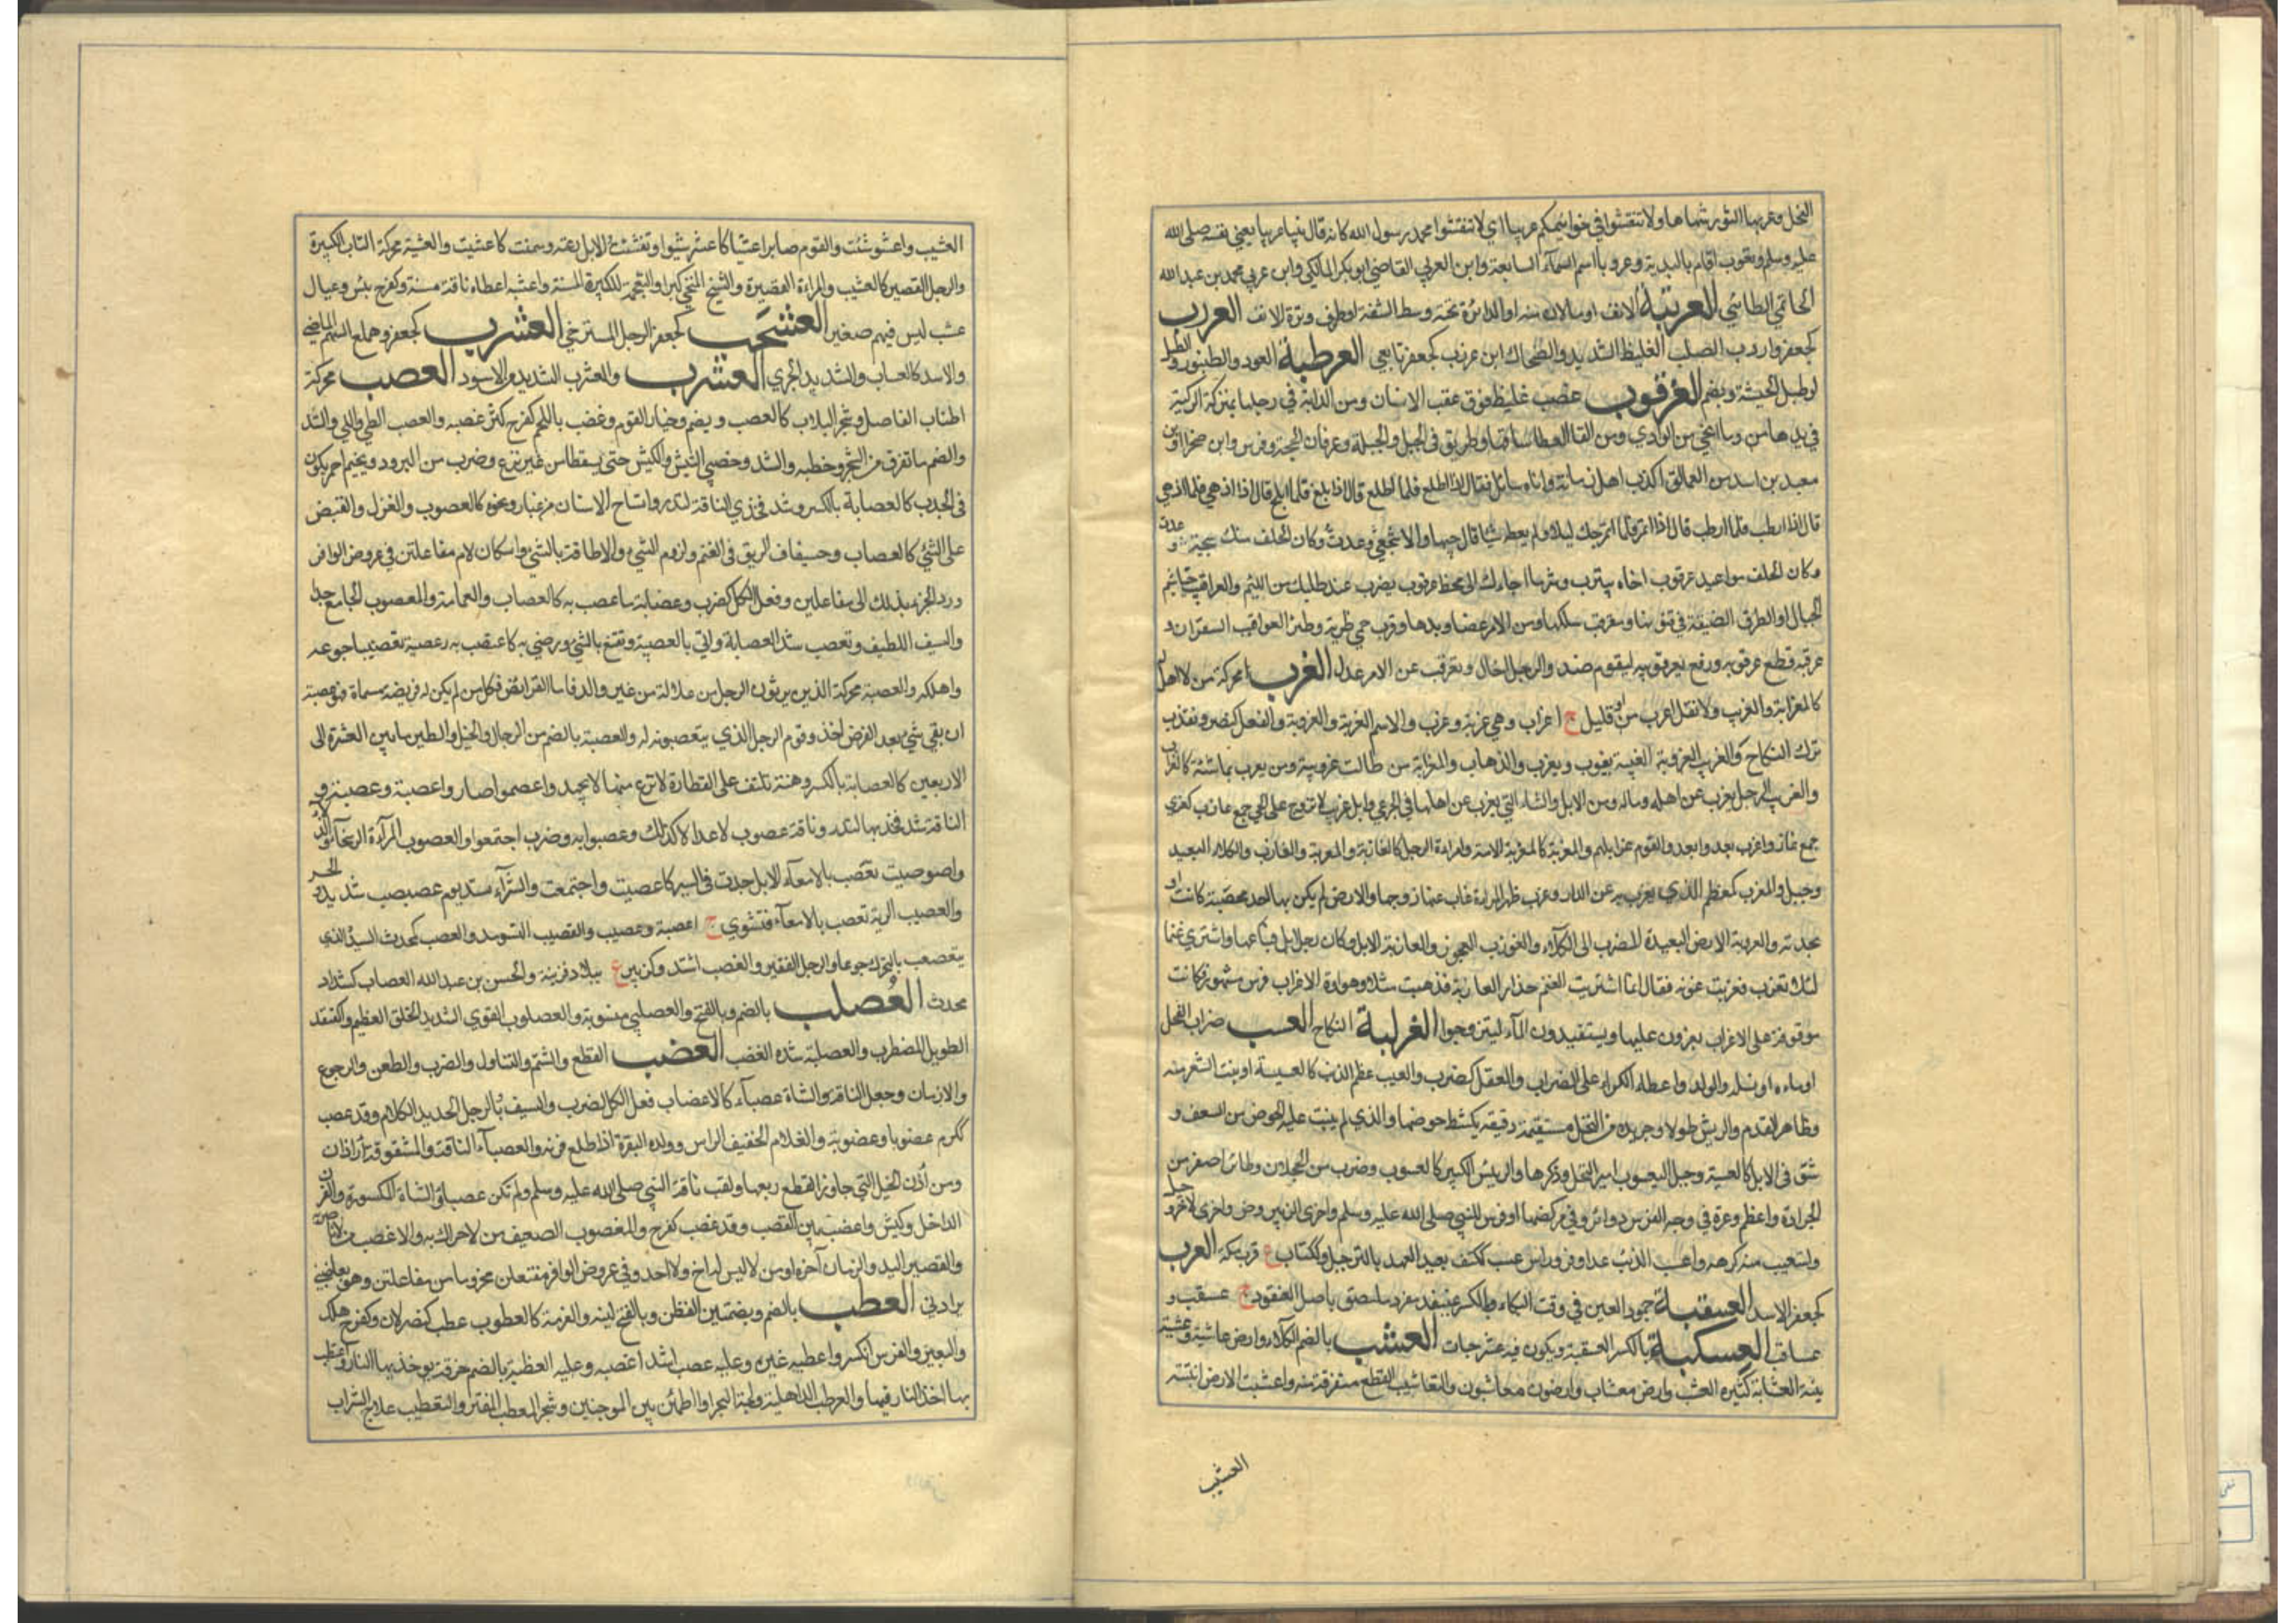 النخل وعربها النور شماها ولا تنقشوا في خواتيمكم عربيا اي لا تنقشوا محمد رسول الله كانه قال نبيا عربيا يعني نفسه صلى الله
عليه وسلم وتعرب اقام بالبدية وعروبا اسم السمآء السابعة وابن العربي القاضي ابو بكر المالكي وابن عربي محمد بن عبد الله
الحاتمي الطائي العرتبة الانف او مالان منه او الدائرة تحته وسط الشفة او طرف وترة الانف العرزب
كجعفر واردب الصلب الغليظ الشديد والضحاك ابن عرزب كجعفر تابعي العرطبة العود والطنبور والطبل
او طبل الحبشة وبضم العرقوب عصب غليظ فوق عقب الانسان ومن الدابة في رجلها بمنزلة الركبة
في يدها ومن وما انحنى من الوادي ومن القطا ساقها وطريق في الجبل والحيلة وعرفان الحجة وفرس وابن صخر او ابن
معبد بن اسد من العمالقة اكذب اهل زمانه واتاه سائل فقال اذا اطلع فلما اطلع قال اذا بلغ فلما ابلح قال اذا ازهى فلما ازهى
قال اذا ارطب فلما ارطب قال اذا اتمر فلما اتمر جده ليلا ولم يعطه شيا قال جبيها والاشجعي وعدت وكان الخلف منك سجية
وكان الخلف مواعيد عرقوب اخاه بيترب وشر ما اجاءك الى مخة عرقوب يضرب عند طلبك من اللئيم والعراقيب خياشيم
الجبال او الطرق الضيقة في متونها وتعرقب سلكها ومن الامر عضاويدها وقرب حمى ضرية وطير العراقيب الشقراق و
عرقبه قطع عرقوبه ورفع بعرقوبيه ليقوم ضد والرجل احتال وتعرقب عن الامر عدل العزب محركة من لا اهل له
كالمعزابة والعزيب ولا تقل اعزب او قليل ج اعزاب وهي عزبة وعزب والاسم العزبة والعزوبة والفعل كنصر وتعزب
ترك النكاح والعزب العزوبة الغيبة يعزب ويعزب والذهاب والمعزابة من طالت عزوبته ومن يعزب بماشيته
والعزيب الرجل يعزب عن اهله وماله ومن الابل والشاء التي يعزب عن اهلها في المرعى وابل عزيب لا تروح على الحي جمع عازب كغزي
جمع غاز واعزب بعد وابعد والقوم عزبت ابلهم والمعزبة كالمغرفة الامة وامراة الرجل كالعازبة والمعزبة والعازب والكلاء البعيد
وجبل والمعزب كمعظم الذي يعزب به عن الدار وعزب طهر المراة غاب عنها زوجها والارض لم يكن بها احد مخصبة كانت او
مجدبة والعزوبة الارض البعيدة المضرب الى الكلاء والعوزب العجوز والعازبة الابل وكان رجل ابل فباعها واشترى غنما
لئلا تعزب فعزبت عنه فقال انما اشتريت الغنم حذار العازبة فذهبت مثلا وهراوة الاعزاب فرس مشهورة كانت
موقوفة على الاعزاب يغزون عليها ويستفيدون المال ليتزوجوا العزلبة النكاح العسب ضراب الفحل
او ماءه او نسله والولد واعطاء الكراء على الضراب والفعل كضرب والعسيب عظم الذنب كالعسيبة او منبت الشعر منه
وظاهر القدم والريش طولا وجريدة من النخل مستقيمة دقيقة يكشط خوصها والذي لم ينبت عليه الخوص من السعف و
شق في الجبل كالعسبة وجبل واليعسوب امير النحل وذكرها والرئيس الكبير كالعسوب وضرب من الحجلان وطائر اصغر من
الجرادة واعظم وغرة في وجه الفرس ودائرة في مركضها او فرس للنبي صلى الله عليه وسلم واخرى للزبير رض واخرى لاخر وجبل
واستعسب منه كرهه واعسب الذئب عدا وفر وراس عسب ككتف بعيد العهد بالترجيل وككتاب ع قرب مكة العسرب
كجعفر الاسد العسقبة جمود العين في وقت البكاء وبالكسر عنيقيد منفرد ملتصق باصل العنقود ج عسقب و
عساقب العسكبة بالكسر العسقبة ويكون فيه عشر حبات العشب بالضم الكلاء وارض عاشبة وعشيبة
بينة العشابة كثيرة العشب وارض معشاب وارضون معاشيب والتعاشيب القطع متفرقة منه واعشبت الارض انبتته
العشيب
العشب واعشوشبت والقوم صابوا عشبا كاعشوشبوا وتعشبت الابل رعته وسمنت كاعشبت والعشبة محركة الناب الكبيرة
والرجل القصير كالعشيب والمراة القصيرة والشيخ المنحني كبرا والنعجة الكبيرة المسنة واعشبه اعطاه ناقة مسنة وكفرح يبس وعيال
عشب ليس فيهم صغير العشجب كجعفر الرجل المسترخي العشرب كجعفر وهملع السهم الماضي
والاسد كالعشارب والشديد الجري العشزب والعشزب الشديد والاسود العصب محركة
اطناب المفاصل وشجر اللبلاب كالعصب ويضم وخيار القوم وعصب اللحم كفرح كثر عصبه والعصب الطي واللي والشد
والضم ما تفرق من الشجر وخبطه والشد وخصي التيس والكبش حتى يسقطا من غير نزع وضرب من البرود وغيم احمر يكون
في الجدب كالعصابة بالكسر وشد فخذي الناقة لتدر واتساخ الاسنان من غبار ونحوه كالعصوب والغزل والقبض
على الشيء كالعصاب وجفاف الريق في الفم ولزوم الشيء والاطافة بالشيء واسكان لام مفاعلتن في عروض الوافر
ورد الجزء بذلك الى مفاعيلن وفعل الكل كضرب وعصابة ما عصب به كالعصاب والعمامة والمعصوب الجائع جدا
والسيف اللطيف وتعصب شد العصابة واتى بالعصبية وتقنع بالشيء ورضي به كاعتصب به وعصبه تعصيبا جوعه
واهلكه والعصبة محركة الذين يرثون الرجل عن كلالة من غير والد ولا ولد فاما الفرائض فكل من لم يكن له فريضة مسماة فهو عصبة
ان بقي شيء بعد الفرض اخذ وقوم الرجل الذي يتعصبون له والعصبة بالضم من الرجال والخيل والطير ما بين العشرة الى
الاربعين كالعصابة بالكسر وهنة تلتف على القتادة لا تنزع منها الا بجهد واعصبوا صاروا عصبة وعصبة و
الناقة شد فخذيها لتدر وناقة عصوب لا تدر الا كذلك وعصبوا به وضرب اجتمعوا والعصوب المراة الرسحآء
واعصوصبت بالابل جدت في السير كاعصبت واجتمعت والشر اشتد ويوم عصيب شديد الحر
والعصيب الرية تعصب بالامعآء فتشوى ج اعصبة وعصب والتعصيب التسويد والمعصب كمحدث السيد الذي
يتعصب بالخرق جوعا والرجل الفقير وانعصب اشتد وكزبير ع ببلاد مزينة والحسن بن عبد الله العصاب كشداد
محدث العصلب بالضم وبالفتح والعصلبي منسوبة والعصلوب القوي الشديد الخلق العظيم وكقنفذ
الطويل المضطرب والعصلبة شدة الغضب العضب القطع والشتم والتناول والضرب والطعن والرجوع
والازمان وجعل الناقة والشاة عضبآء كالاعضاب فعل الكل كضرب والسيف والرجل الحديد الكلام وقد عضب
ككرم عضوبا وعضوبة والغلام الخفيف الراس وولد البقرة اذا طلع قرنه والعضبآء الناقة المشقوقة الاذن
ومن آذان الخيل التي جاوز القطع ربعها ولقب ناقة النبي صلى الله عليه وسلم ولم تكن عضبآء والشاة المكسورة القرن
الداخل وكبش اعضب بين العضب وقد عضب كفرح والمعضوب الضعيف من لا حراك به والاعضب من لا ناصر له
والقصير اليد والذي مات اخوه او من ليس له اخ ولا احد وفي عروض الوافر مفتعلن مخروما من مفاعلتن وهو يعاضبني
يرادني العطب بالضم وبضمتين القطن وبالفتح لينه ونعومته كالعطوب عطب كنصر لان وكفرح هلك
والبعير والفرس انكسر واعطبه غيره وعليه غضب اشد الغضب والعطبة بالضم خرقة يوخذ بها النار واعتطب
بها اخذ النار فيها والعوطب الداهية ولجة البحر او المطمئن بين الموجتين وشجر والمعطب المقتر والتعطيب علاج الشراب